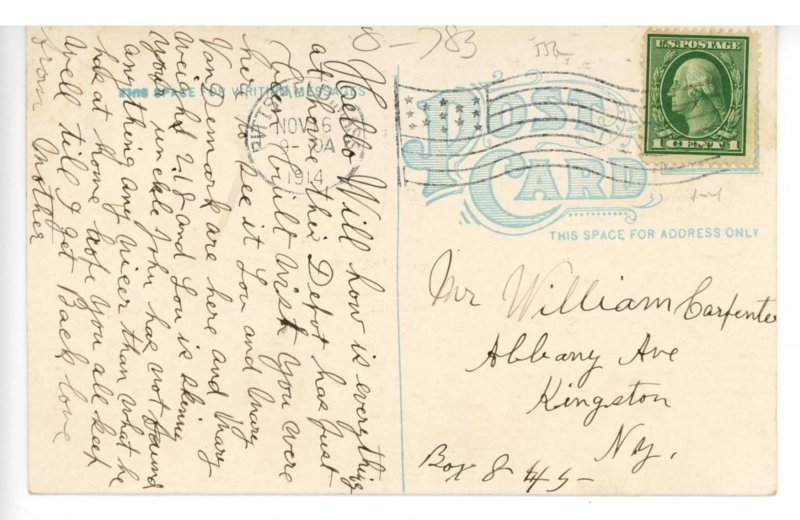 8-783
THIS SPACE FOR WRITING MESSAGES
NOV 6
9- A
1914
POST
CARD
U.S. POSTAGE
1 CENT 1
THIS SPACE FOR ADDRESS ONLY
Hello Will how is everything
at home this Depot has Just
been built wish you were
here to see it Lou and Mary
VanDemark are here and Mary
weighs 218 and Lou is skinny
your unckle John has not found
anything any nicer than what he
had at home hope you all keep
well till I get Back love
from Mother
Mr William Carpenter
Albany Ave
Kingston
Box 845- NY.